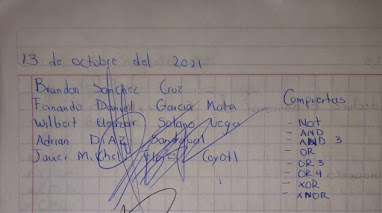 13 de octubre del 2021
Brandon Sanchez Cruz
Fernando Daniel Garcia Mata
Wilbert Eleazar Solano Vega
Adrian DIAZ Sandoval
Javier Michel Coyotl
Compuertas
- Not
- AND
- AND 3
- OR
- OR 3
- OR 4
- XOR
- XNOR